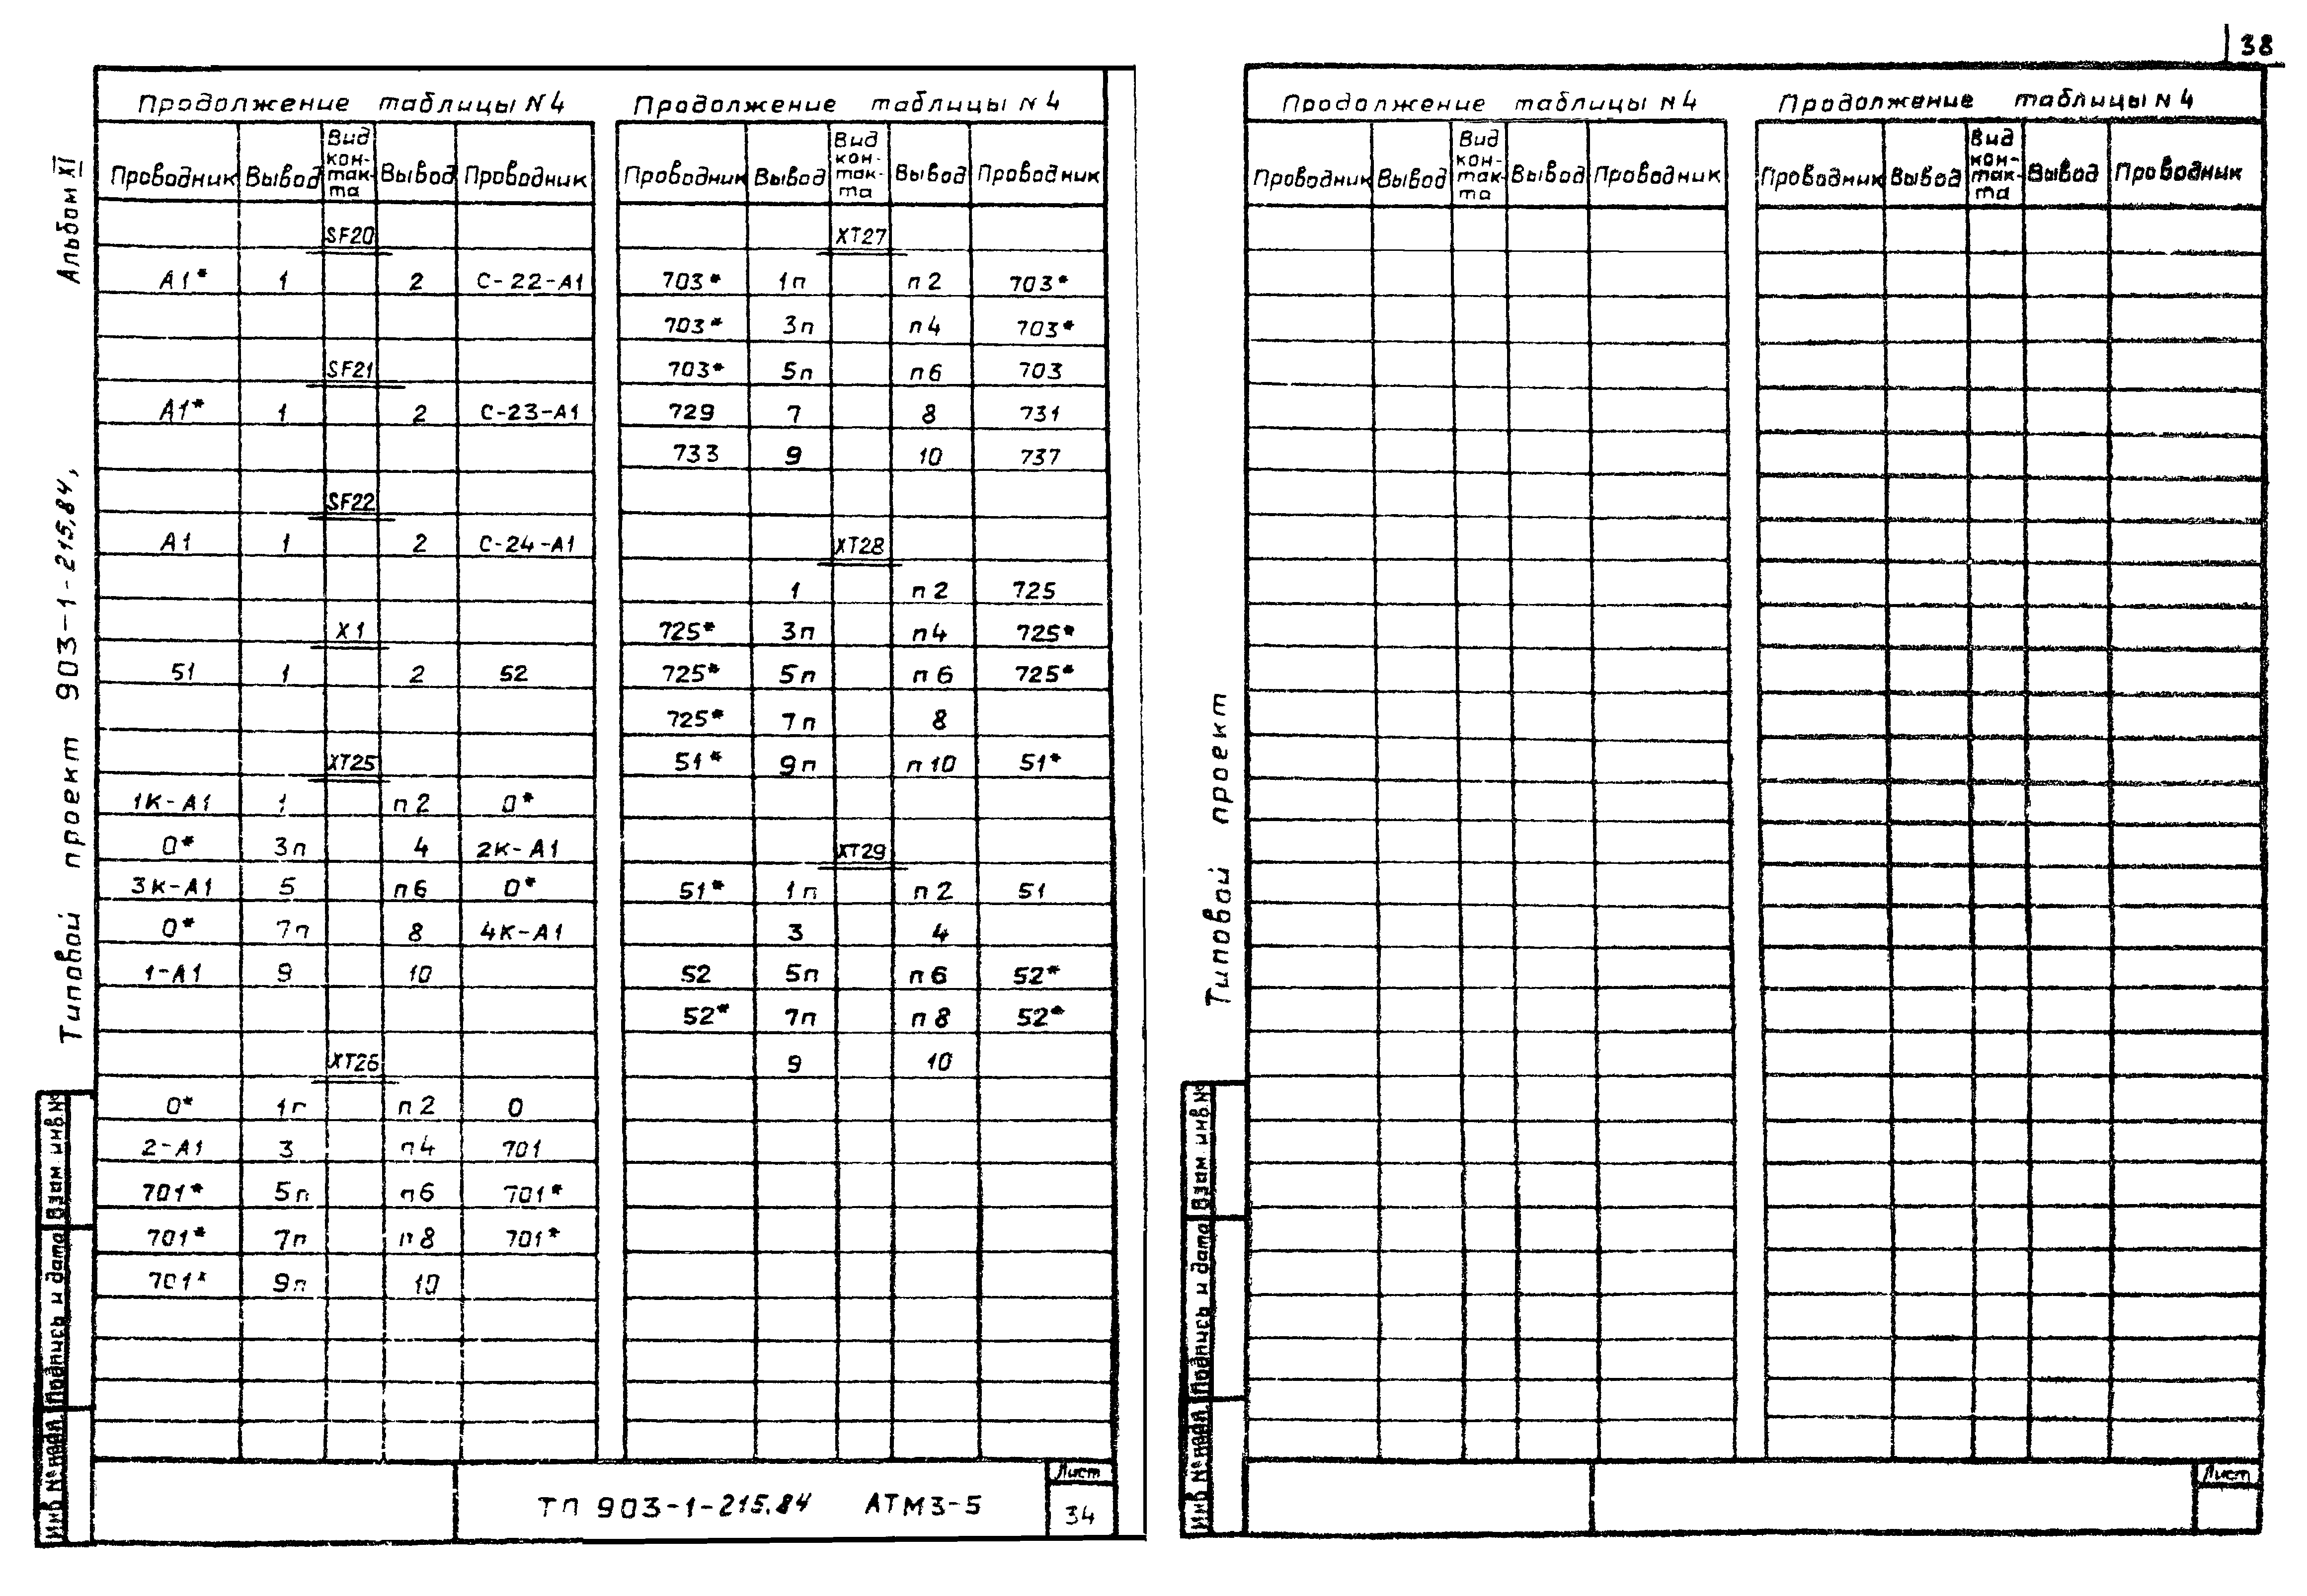 38
Альбом XI
Типовой проект 903-1-215.84,
Продолжение таблицы N4
Проводник Вывод Вид кон-так-та Вывод Проводник
SF20
А1* 1 2 С-22-А1
SF21
А1* 1 2 С-23-А1
SF22
А1 1 2 С-24-А1
X1
51 1 2 52
XT25
1К-А1 1 п2 0*
0* 3п 4 2К-А1
3К-А1 5 п6 0*
0* 7п 8 4К-А1
1-А1 9 10
XT26
0* 1п п2 0
2-А1 3 п4 701
701* 5п п6 701*
701* 7п п8 701*
701* 9п 10
Продолжение таблицы N4
Проводник Вывод Вид кон-так-та Вывод Проводник
XT27
703* 1п п2 703*
703* 3п п4 703*
703* 5п п6 703
729 7 8 731
733 9 10 737
XT28
1 п2 725
725* 3п п4 725*
725* 5п п6 725*
725* 7п 8
51* 9п п10 51*
XT29
51* 1п п2 51
3 4
52 5п п6 52*
52* 7п п8 52*
9 10
Инв № подл. Подпись и дата Взам инв.№
ТП 903-1-215.84 АТМ3-5
Лист
34
Типовой проект
Продолжение таблицы N4
Проводник Вывод Вид кон-так-та Вывод Проводник
Продолжение таблицы N4
Проводник Вывод Вид кон-так-та Вывод Проводник
Инв № подл. Подпись и дата Взам инв.№
Лист